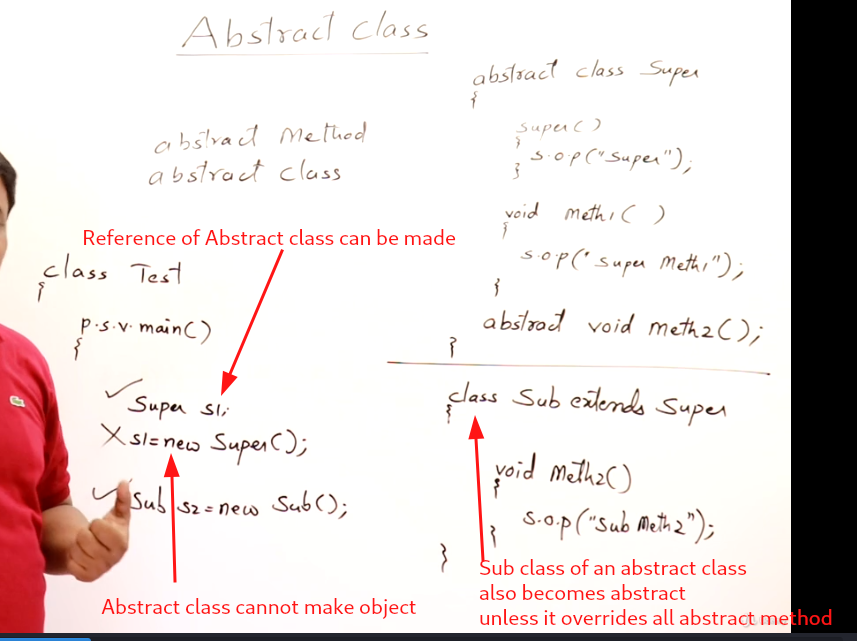 Abstract Class
abstract Method
abstract class
Reference of Abstract class can be made
class Test
{
p.s.v. main()
{
✓ Super s1;
X s1=new Super();
✓ Sub s2=new Sub();
Abstract class cannot make object
abstract class Super
{
super()
{
} s.o.p("Super");
void meth1( )
{
s.o.p("super Meth1");
}
abstract void meth2();
}
class Sub extends Super
{
void Meth2()
{
} s.o.p("Sub Meth2");
}
Sub class of an abstract class
also becomes abstract
unless it overrides all abstract method